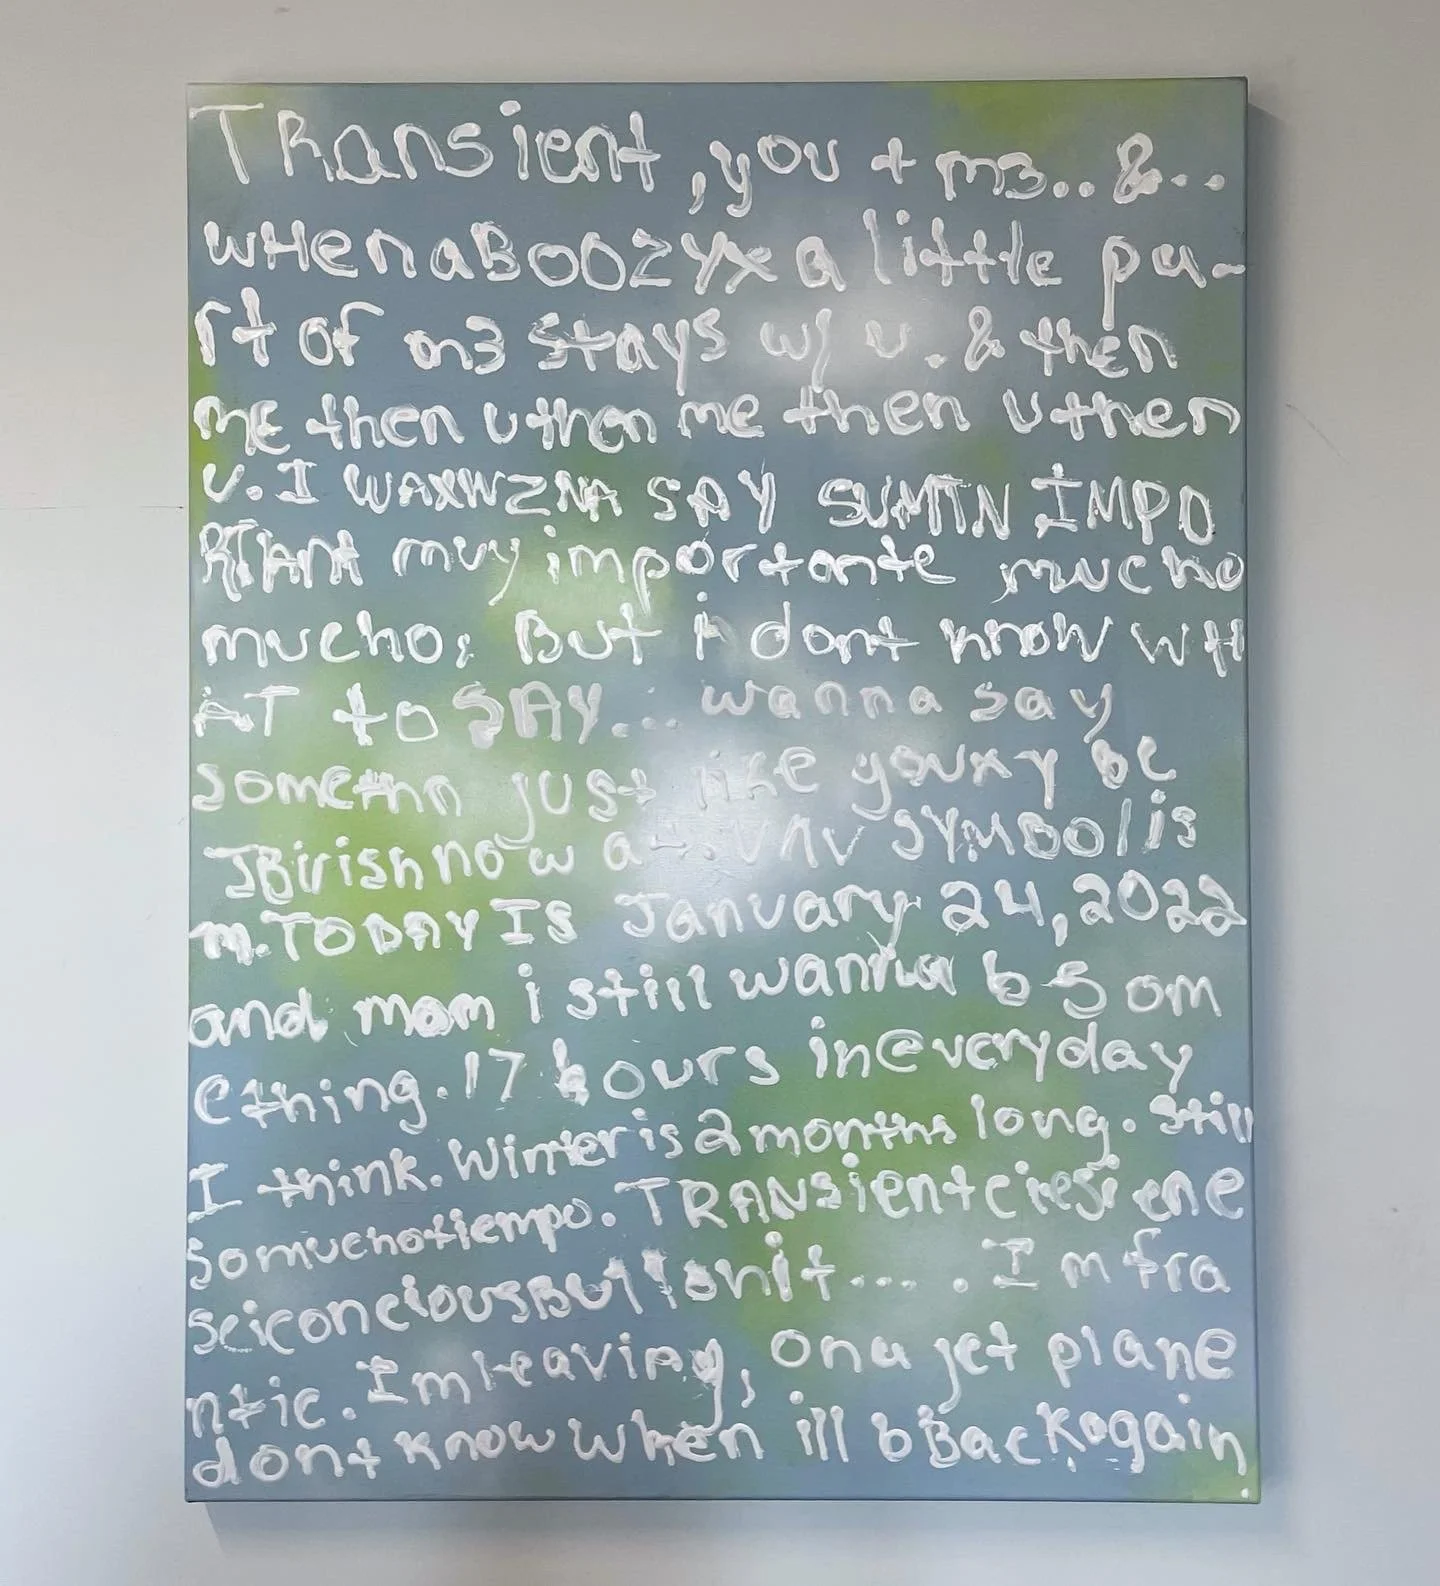 TRansient, you + m3.. &..
wHen aBOOZYx a little pa-
rt of m3 stays w/ u. & then
mE then u then me then u then
u. I WAXWZNA SAY SUMTN IMPO
RTAnt muy importante mucho
mucho; But i dont know wH
AT to SAY... wanna say
somethn just like youxy be
JBirish now a UNV SYMBOl is
m. TODAY IS January 24, 2022
and mom i still wanna b 5 om
ething. 17 hours in everyday
I think. Winter is 2 months long. Still
somuchotiempo. TRANsient
I m fra
ntic. Im leaving, on a jet plane
dont know when ill b Back again.